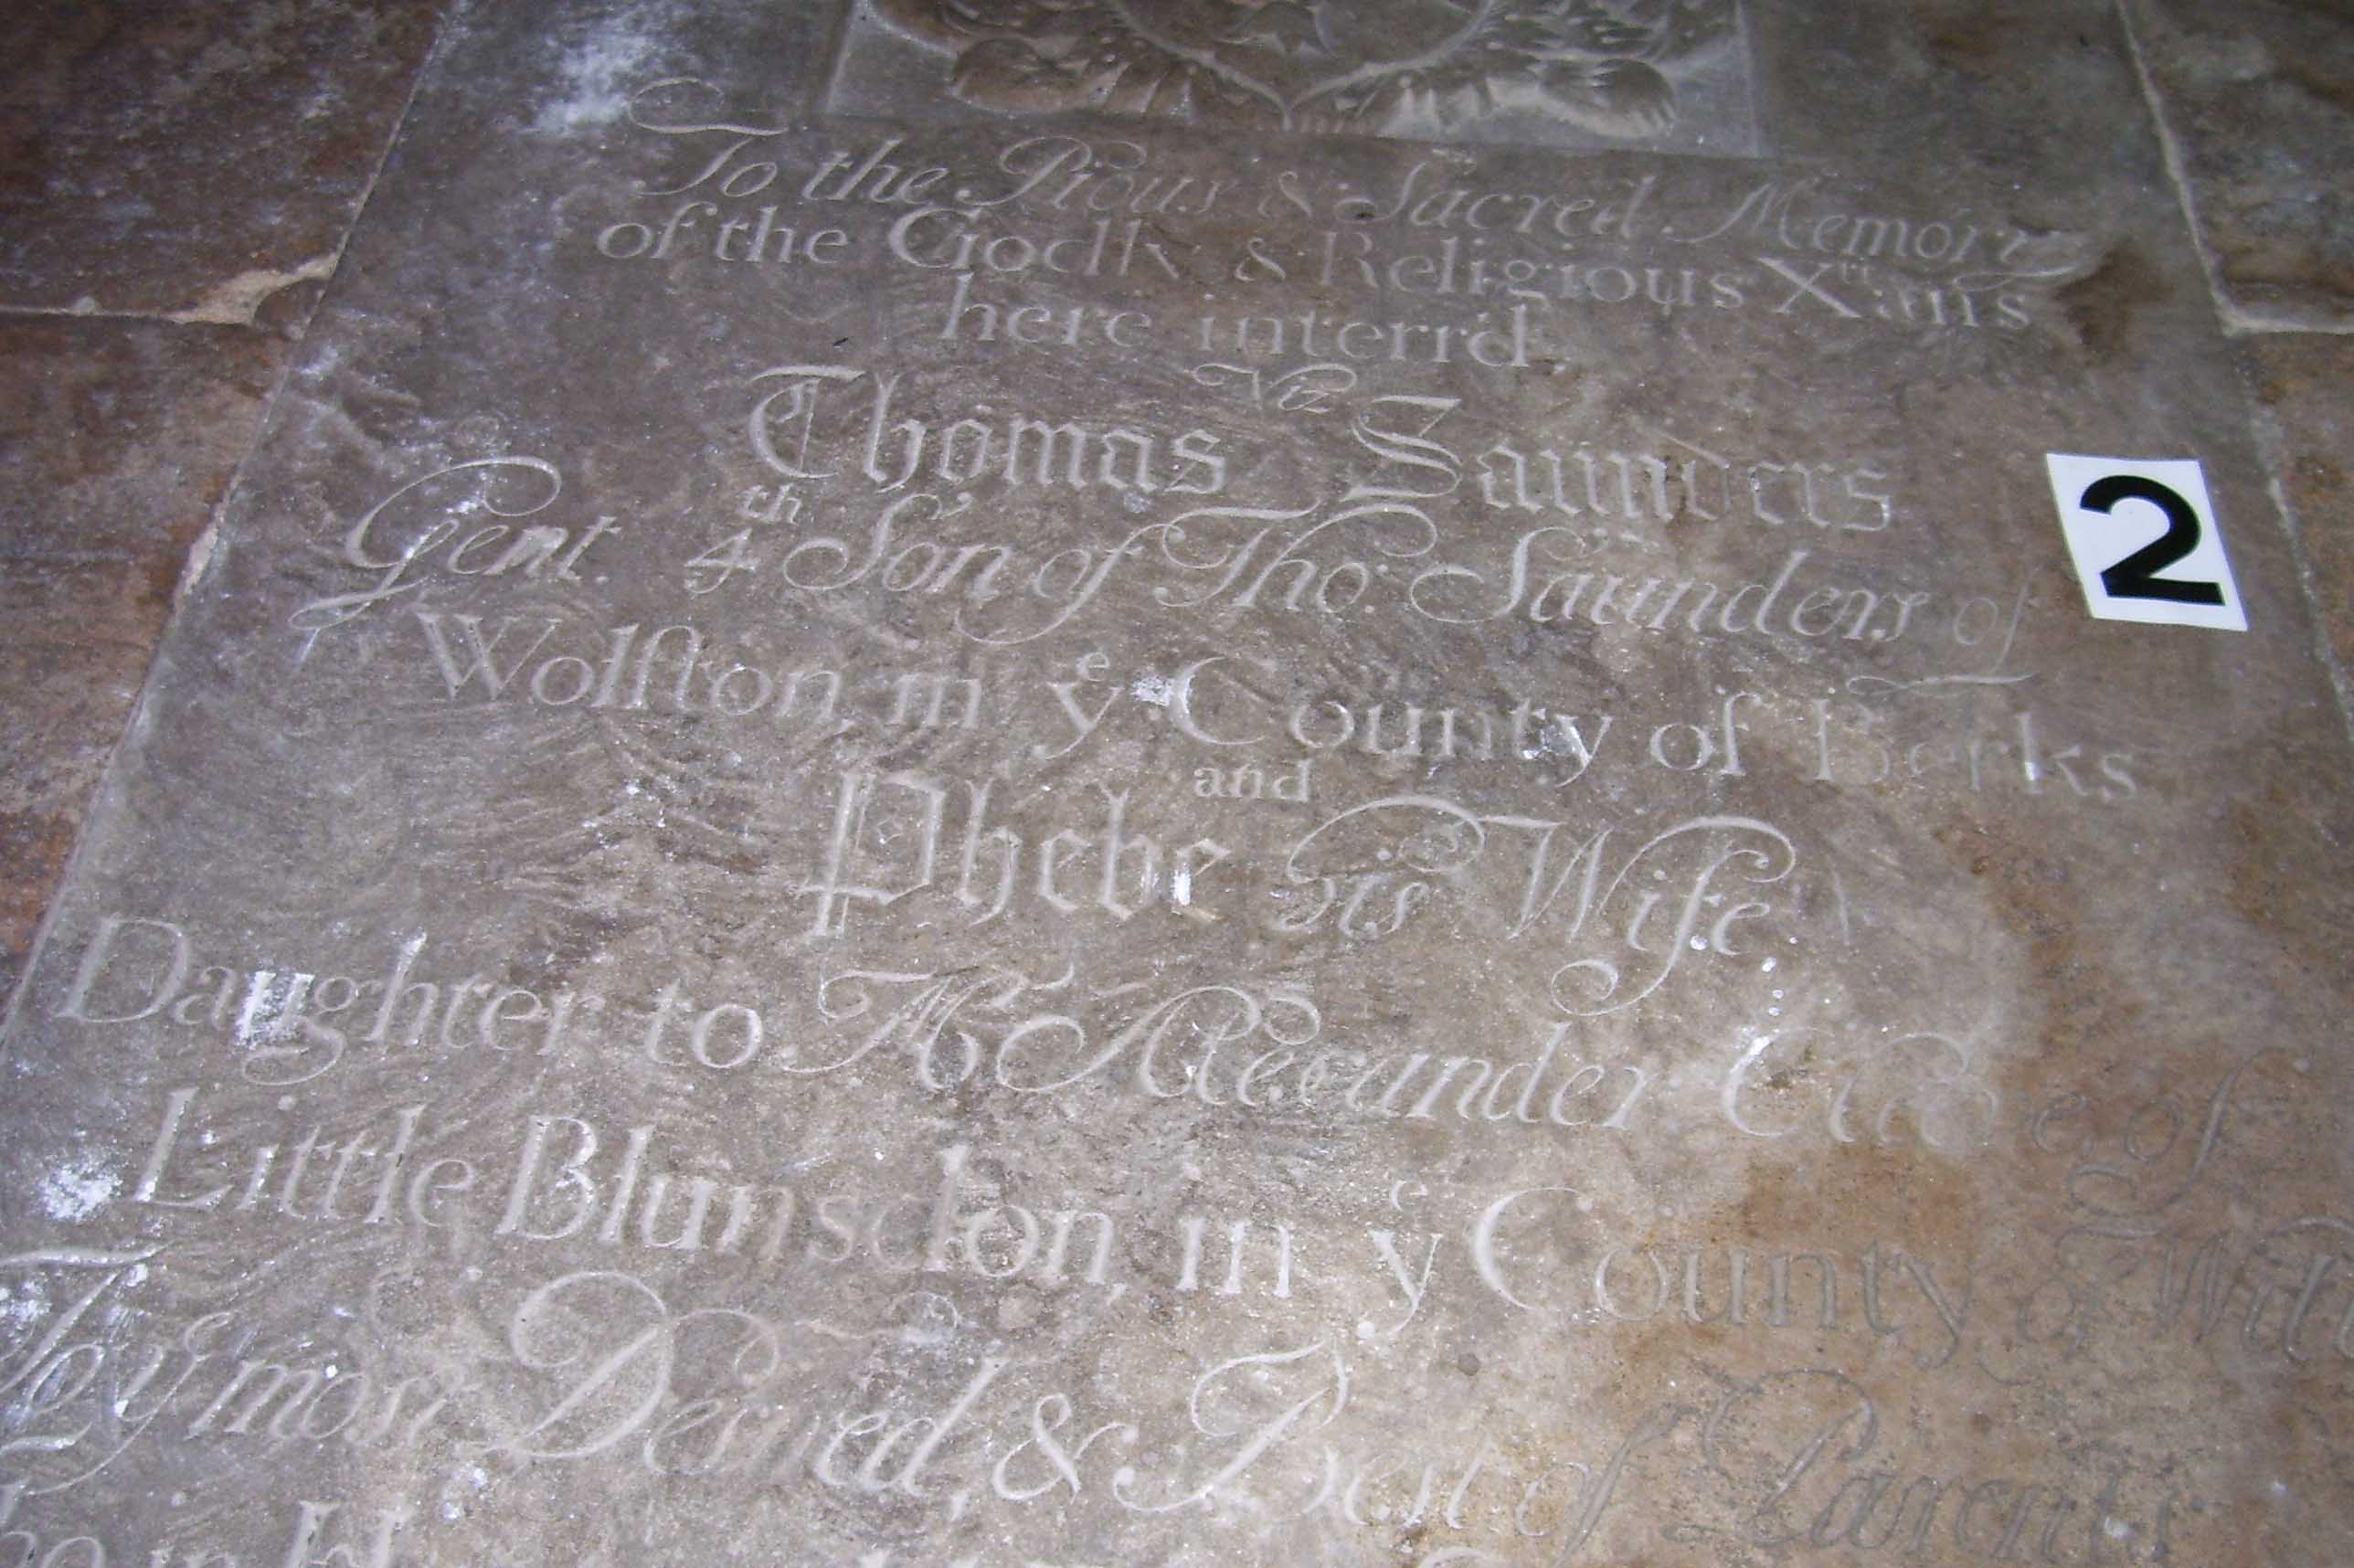 To the Pious & Sacred Memory
of the Godly & Religious Xtians
here interr'd
Viz
Thomas Saunders
Gent. 4th Son of Tho: Saunders of
Wolſton, in ye County of Berks
and
Phebe his Wife
Daughter to Mr Alexander of
Little Blunsdon, in ye County of Wilts
To ye most Derned, & Best of Parents
2